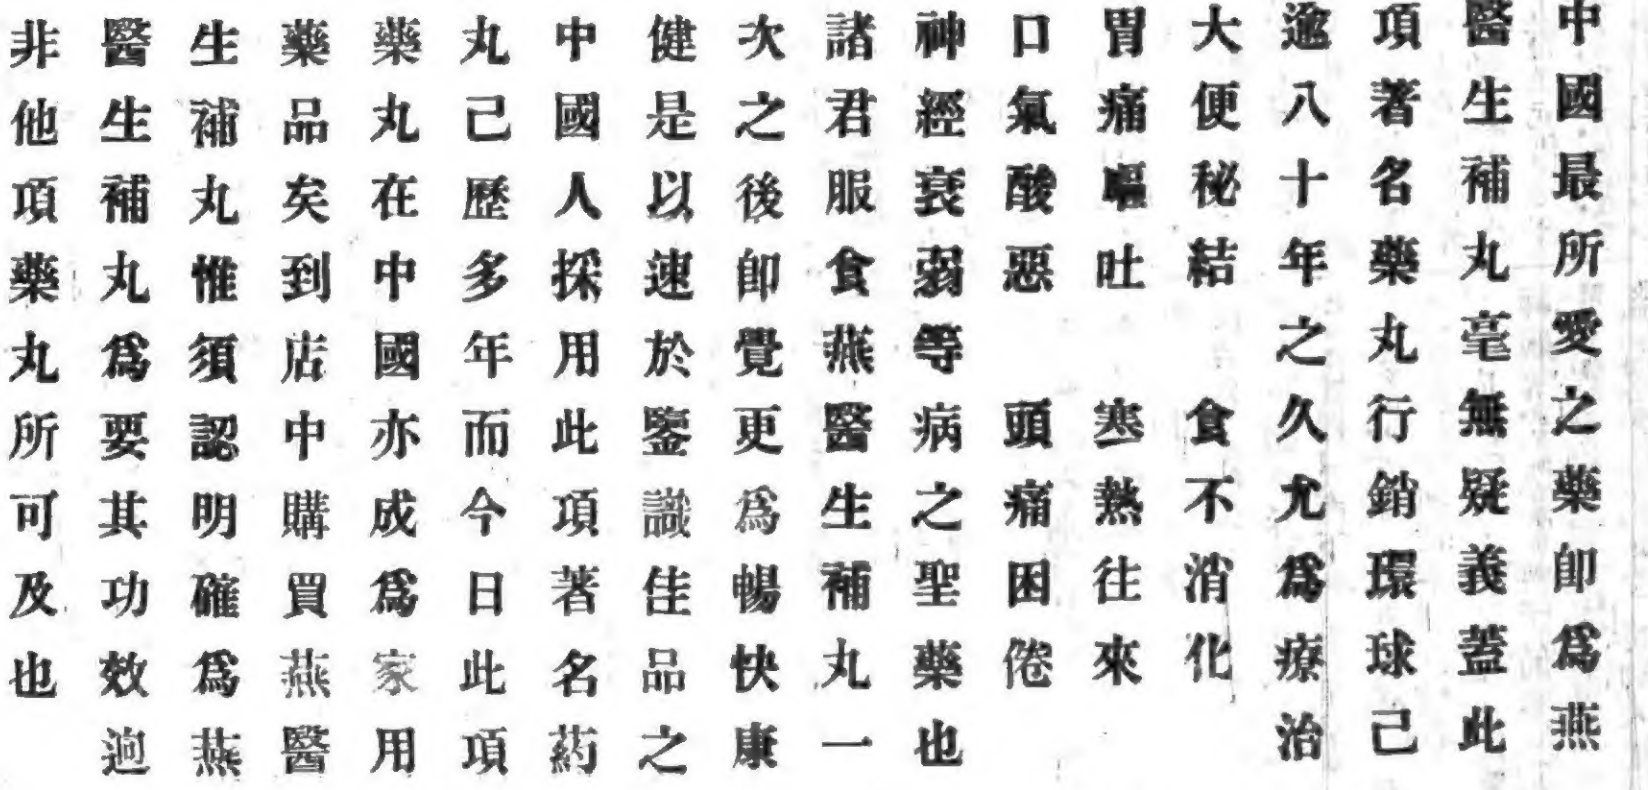 中國最所愛之藥卽爲燕
醫生補丸毫無疑義蓋此
項著名藥丸行銷環球己
逾八十年之久尤爲療治
大便秘結　食不消化
胃痛嘔吐　寒熱往來
口氣酸惡　頭痛困倦
神經衰弱等病之聖藥也
諸君服食燕醫生補丸一
次之後卽覺更爲暢快康
健是以速於鑒識佳品之
中國人採用此項著名葯
丸己歷多年而今日此項
藥丸在中國亦成爲家用
藥品矣到店中購買燕醫
生補丸惟須認明確爲燕
醫生補丸爲要其功效迥
非他項藥丸所可及也